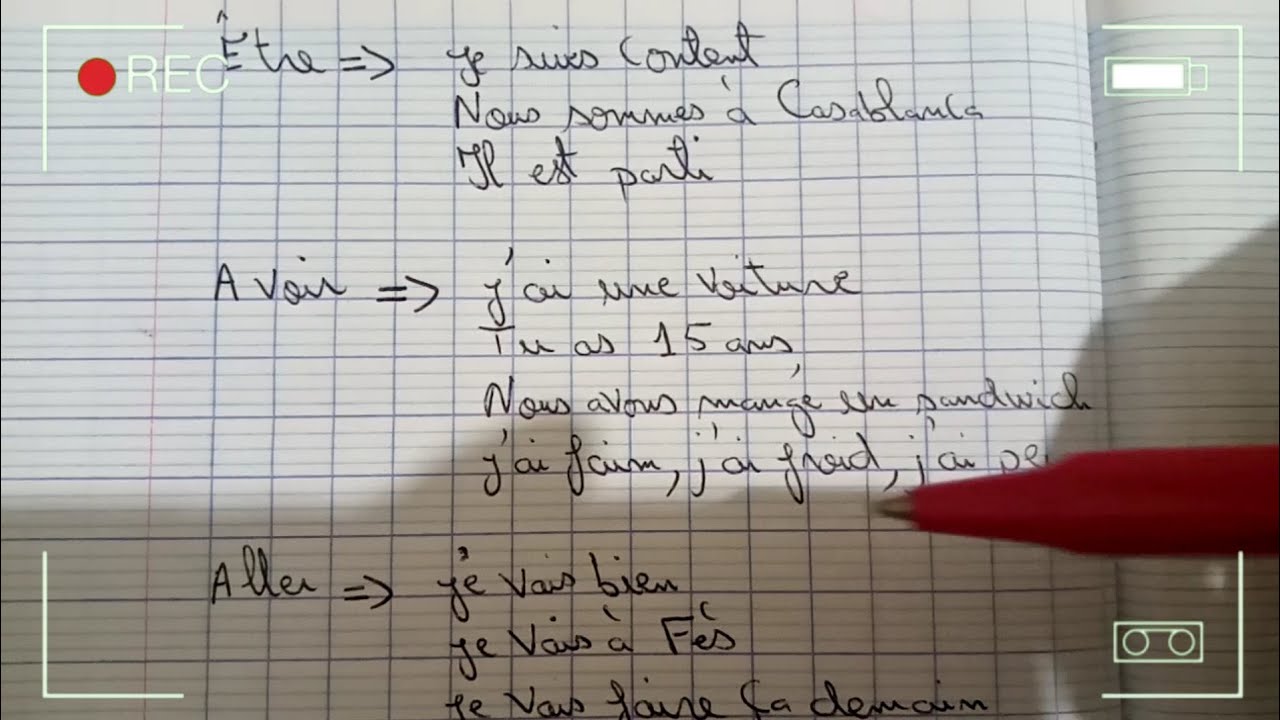 REC
Être => je suis content
Nous sommes à Casablanca
Il est parti
Avoir => j'ai une voiture
Tu as 15 ans
Nous avons mangé un sandwich
j'ai faim, j'ai froid, j'ai
Aller => je vais bien
je vais à Fès
je vais faire ça demain